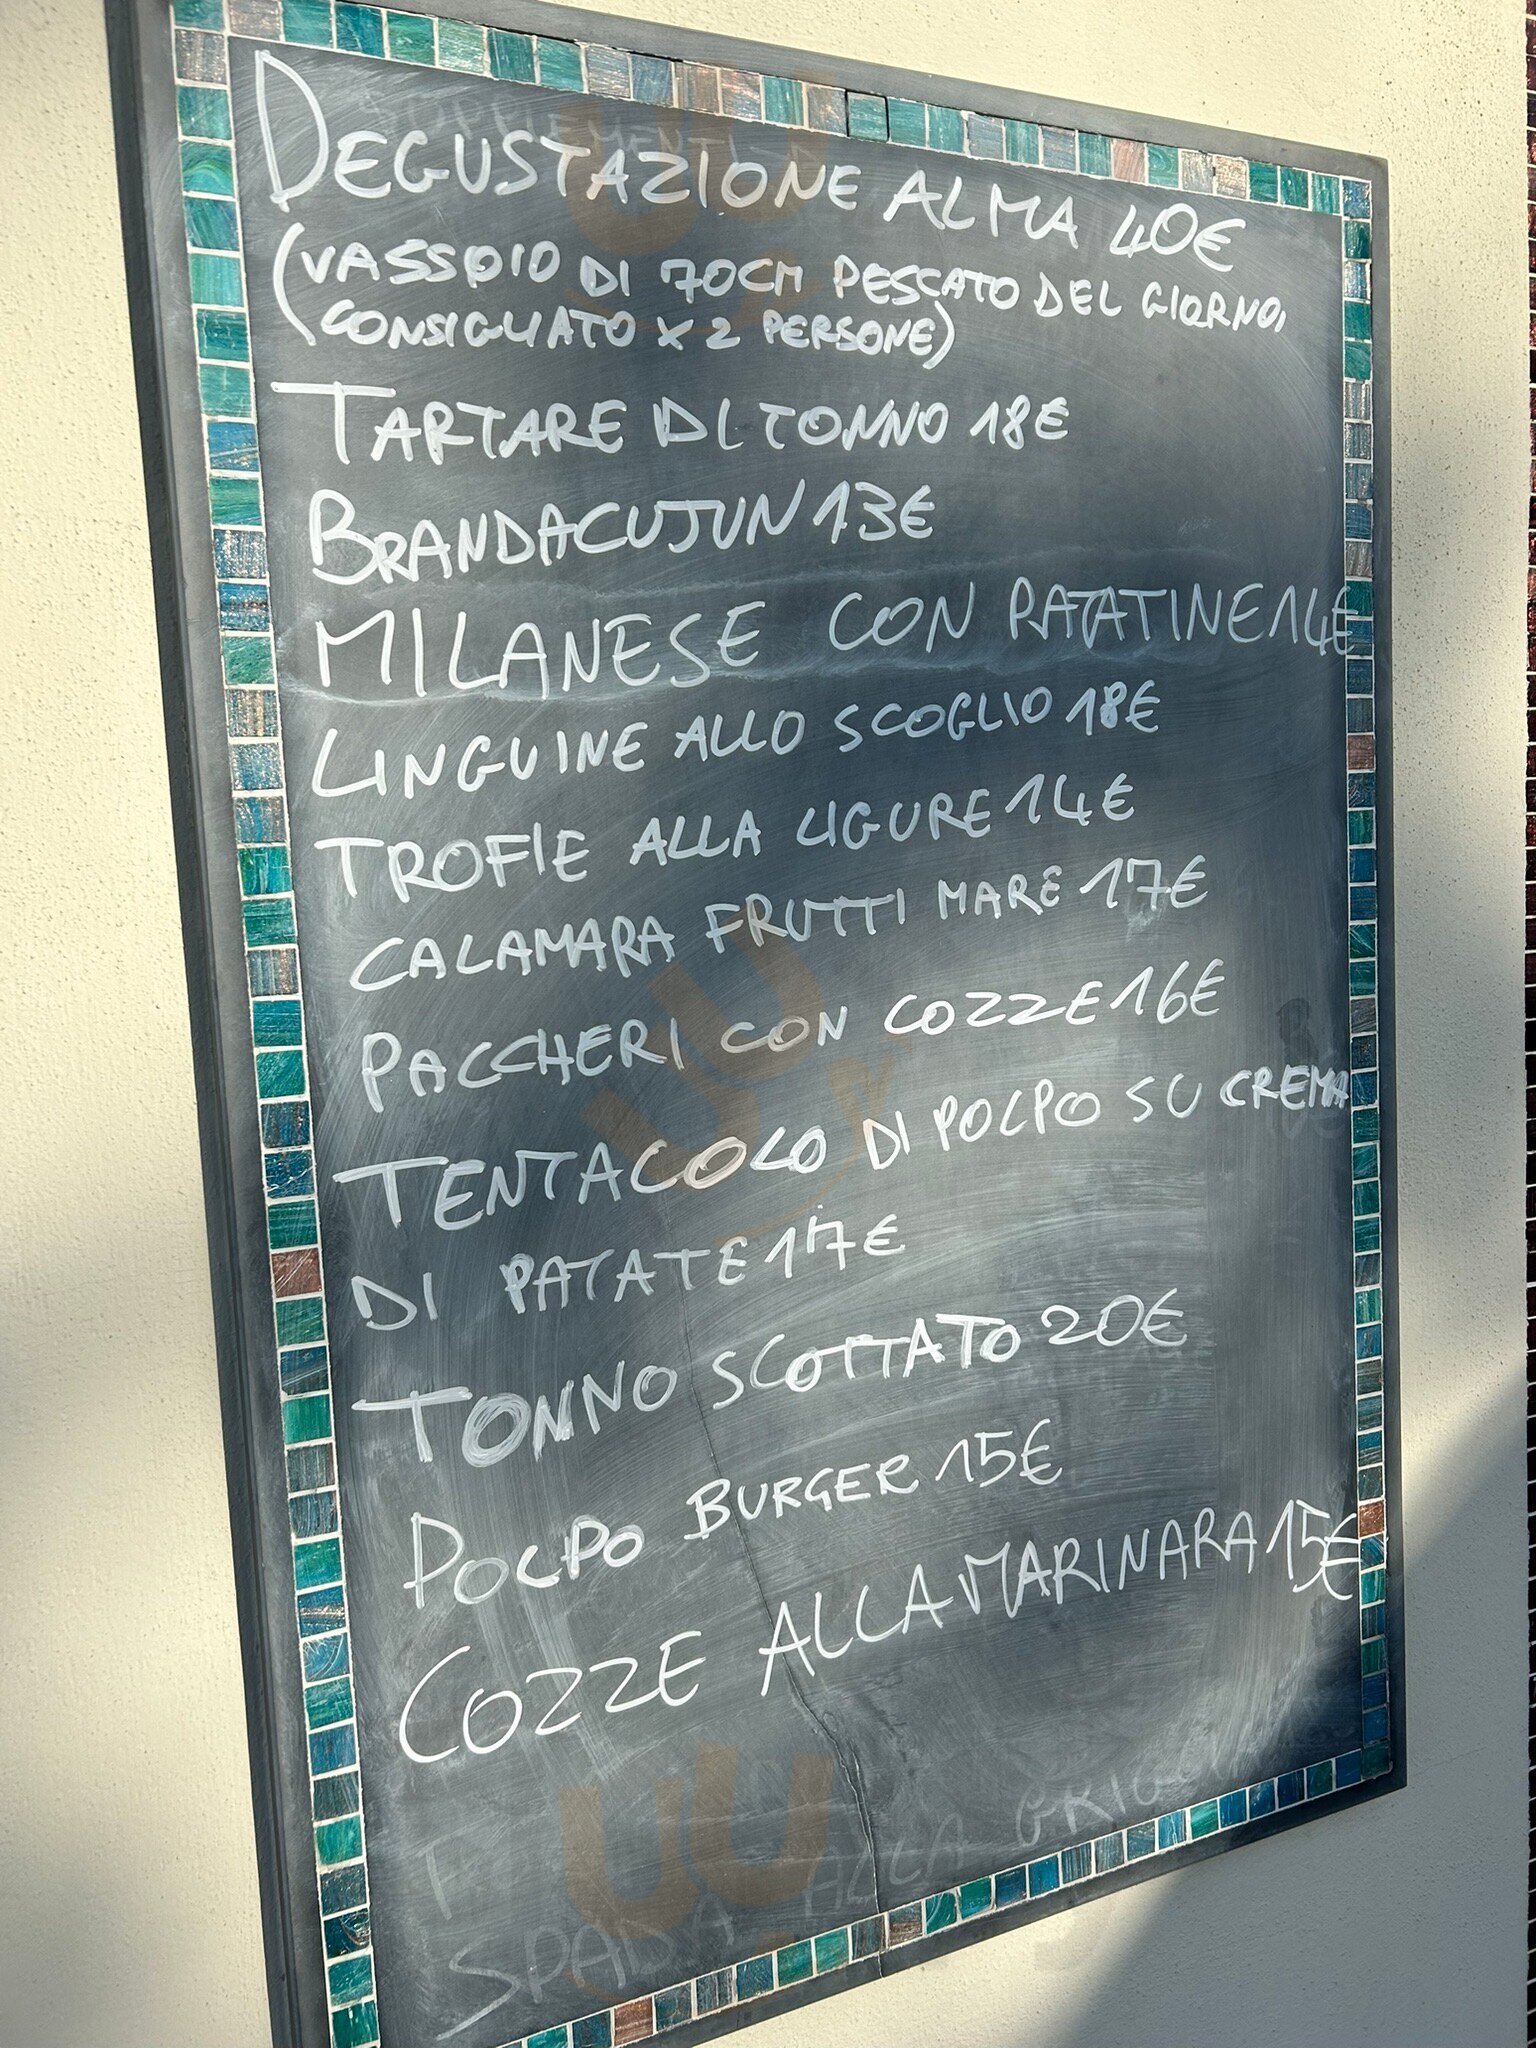 DEGUSTAZIONE ALMA 40€
(VASSOIO DI 70CM PESCATO DEL GIORNO,
CONSIGLIATO X 2 PERSONE)
TARTARE DI TONNO 18€
BRANDACUJUN 13€
MILANESE CON PATATINE 14€
LINGUINE ALLO SCOGLIO 18€
TROFIE ALLA LIGURE 14€
CALAMARA FRUTTI MARE 17€
PACCHERI CON COZZE 16€
TENTACOLO DI POLPO SU CREMA
DI PATATE 17€
TONNO SCOTTATO 20€
POLPO BURGER 15€
COZZE ALLA MARINARA 15€
SPADA ALLA